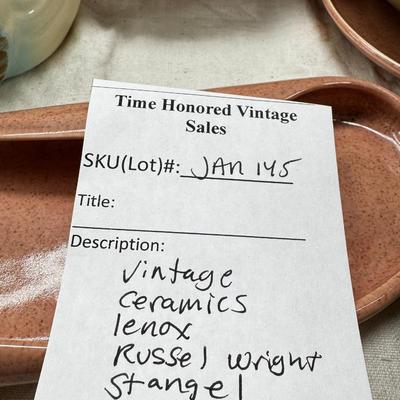 Time Honored Vintage
Sales
SKU(Lot)#: JAN 145
Title:
Description:
vintage
ceramics
lenox
Russel Wright
Stangel